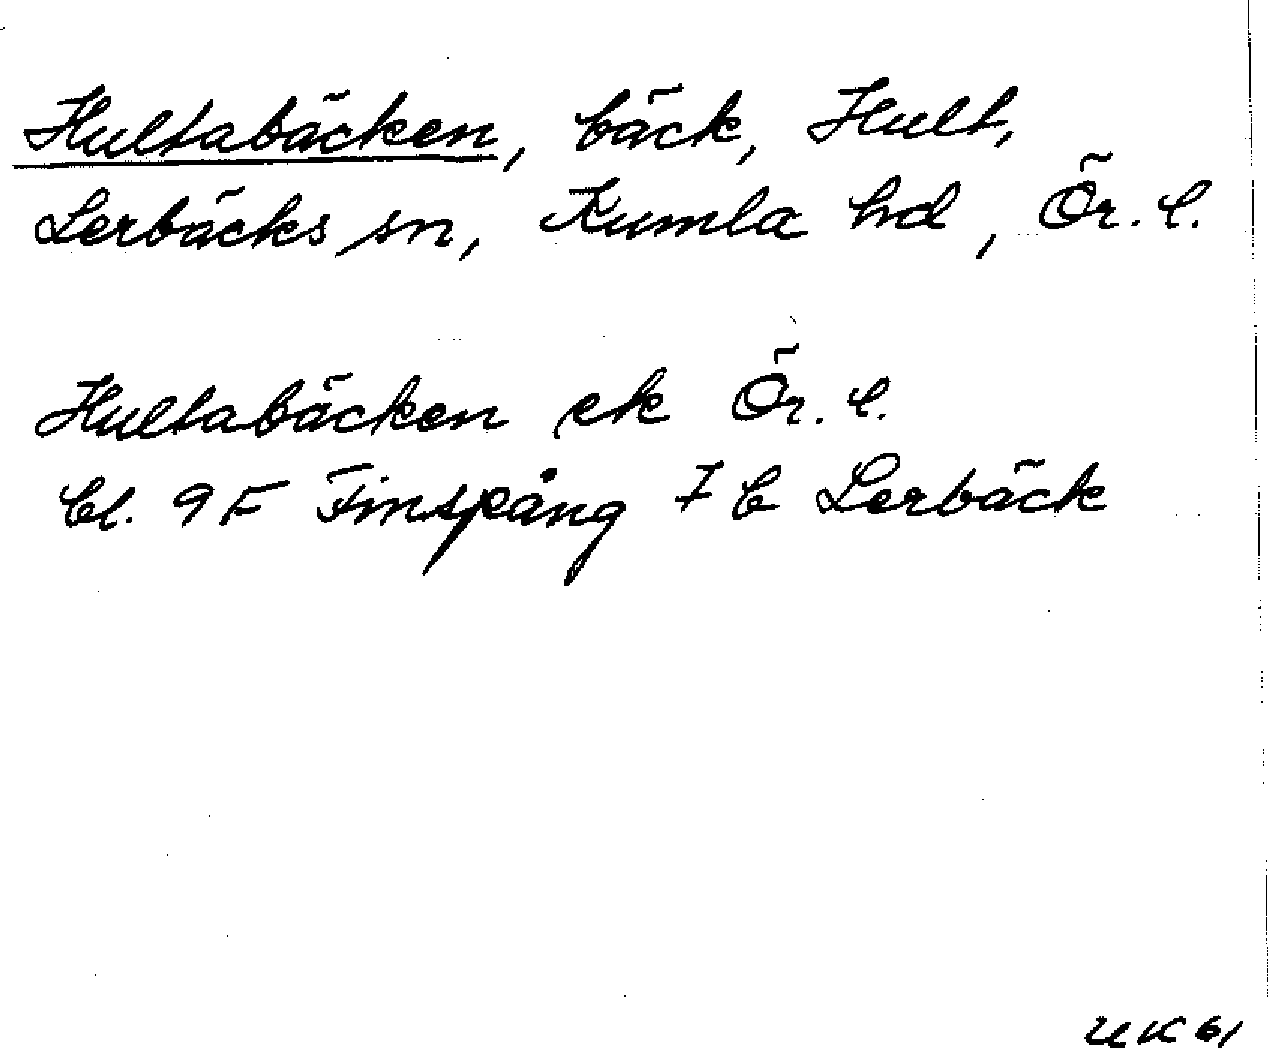 Hultabäcken, bäck, Hult,
Lerbäcks sn, Kumla hd, Ör. l.
Hultabäcken ek Ör. l.
bl. 9F Finspång 7 b Lerbäck
UK 61